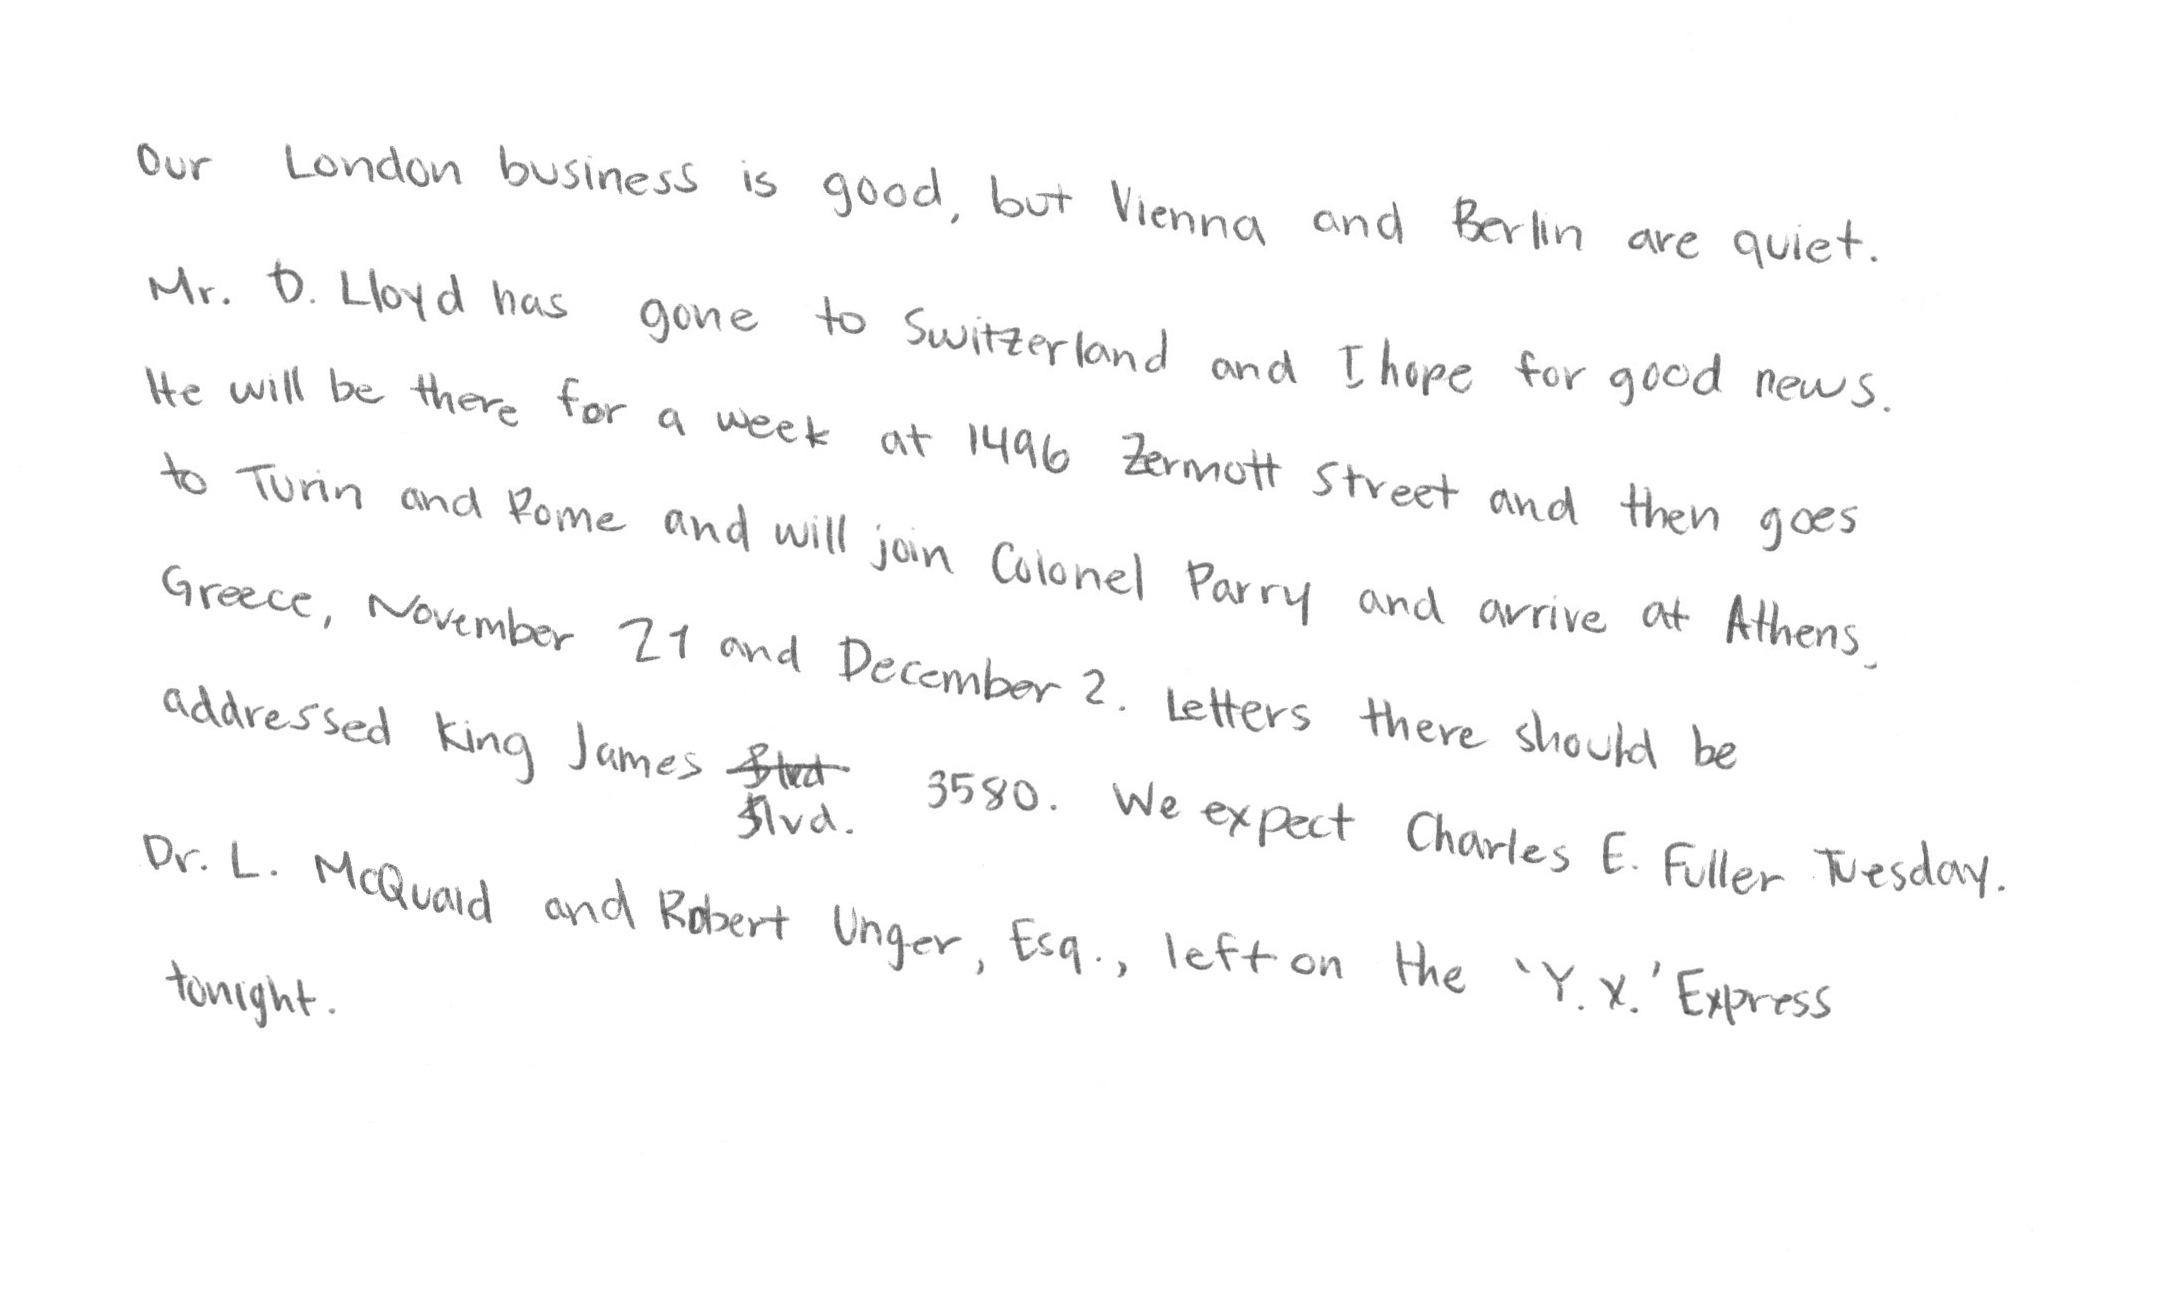 Our London business is good, but Vienna and Berlin are quiet.
Mr. D. Lloyd has gone to Switzerland and I hope for good news.
He will be there for a week at 1496 Zermott Street and then goes
to Turin and Rome and will join Colonel Parry and arrive at Athens,
Greece, November 21 and December 2. Letters there should be
addressed King James Blvd 3580. We expect Charles E. Fuller Tuesday.
Blvd.
Dr. L. McQuaid and Robert Unger, Esq., left on the 'Y.X.' Express
tonight.